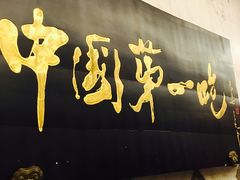 中国第一吃